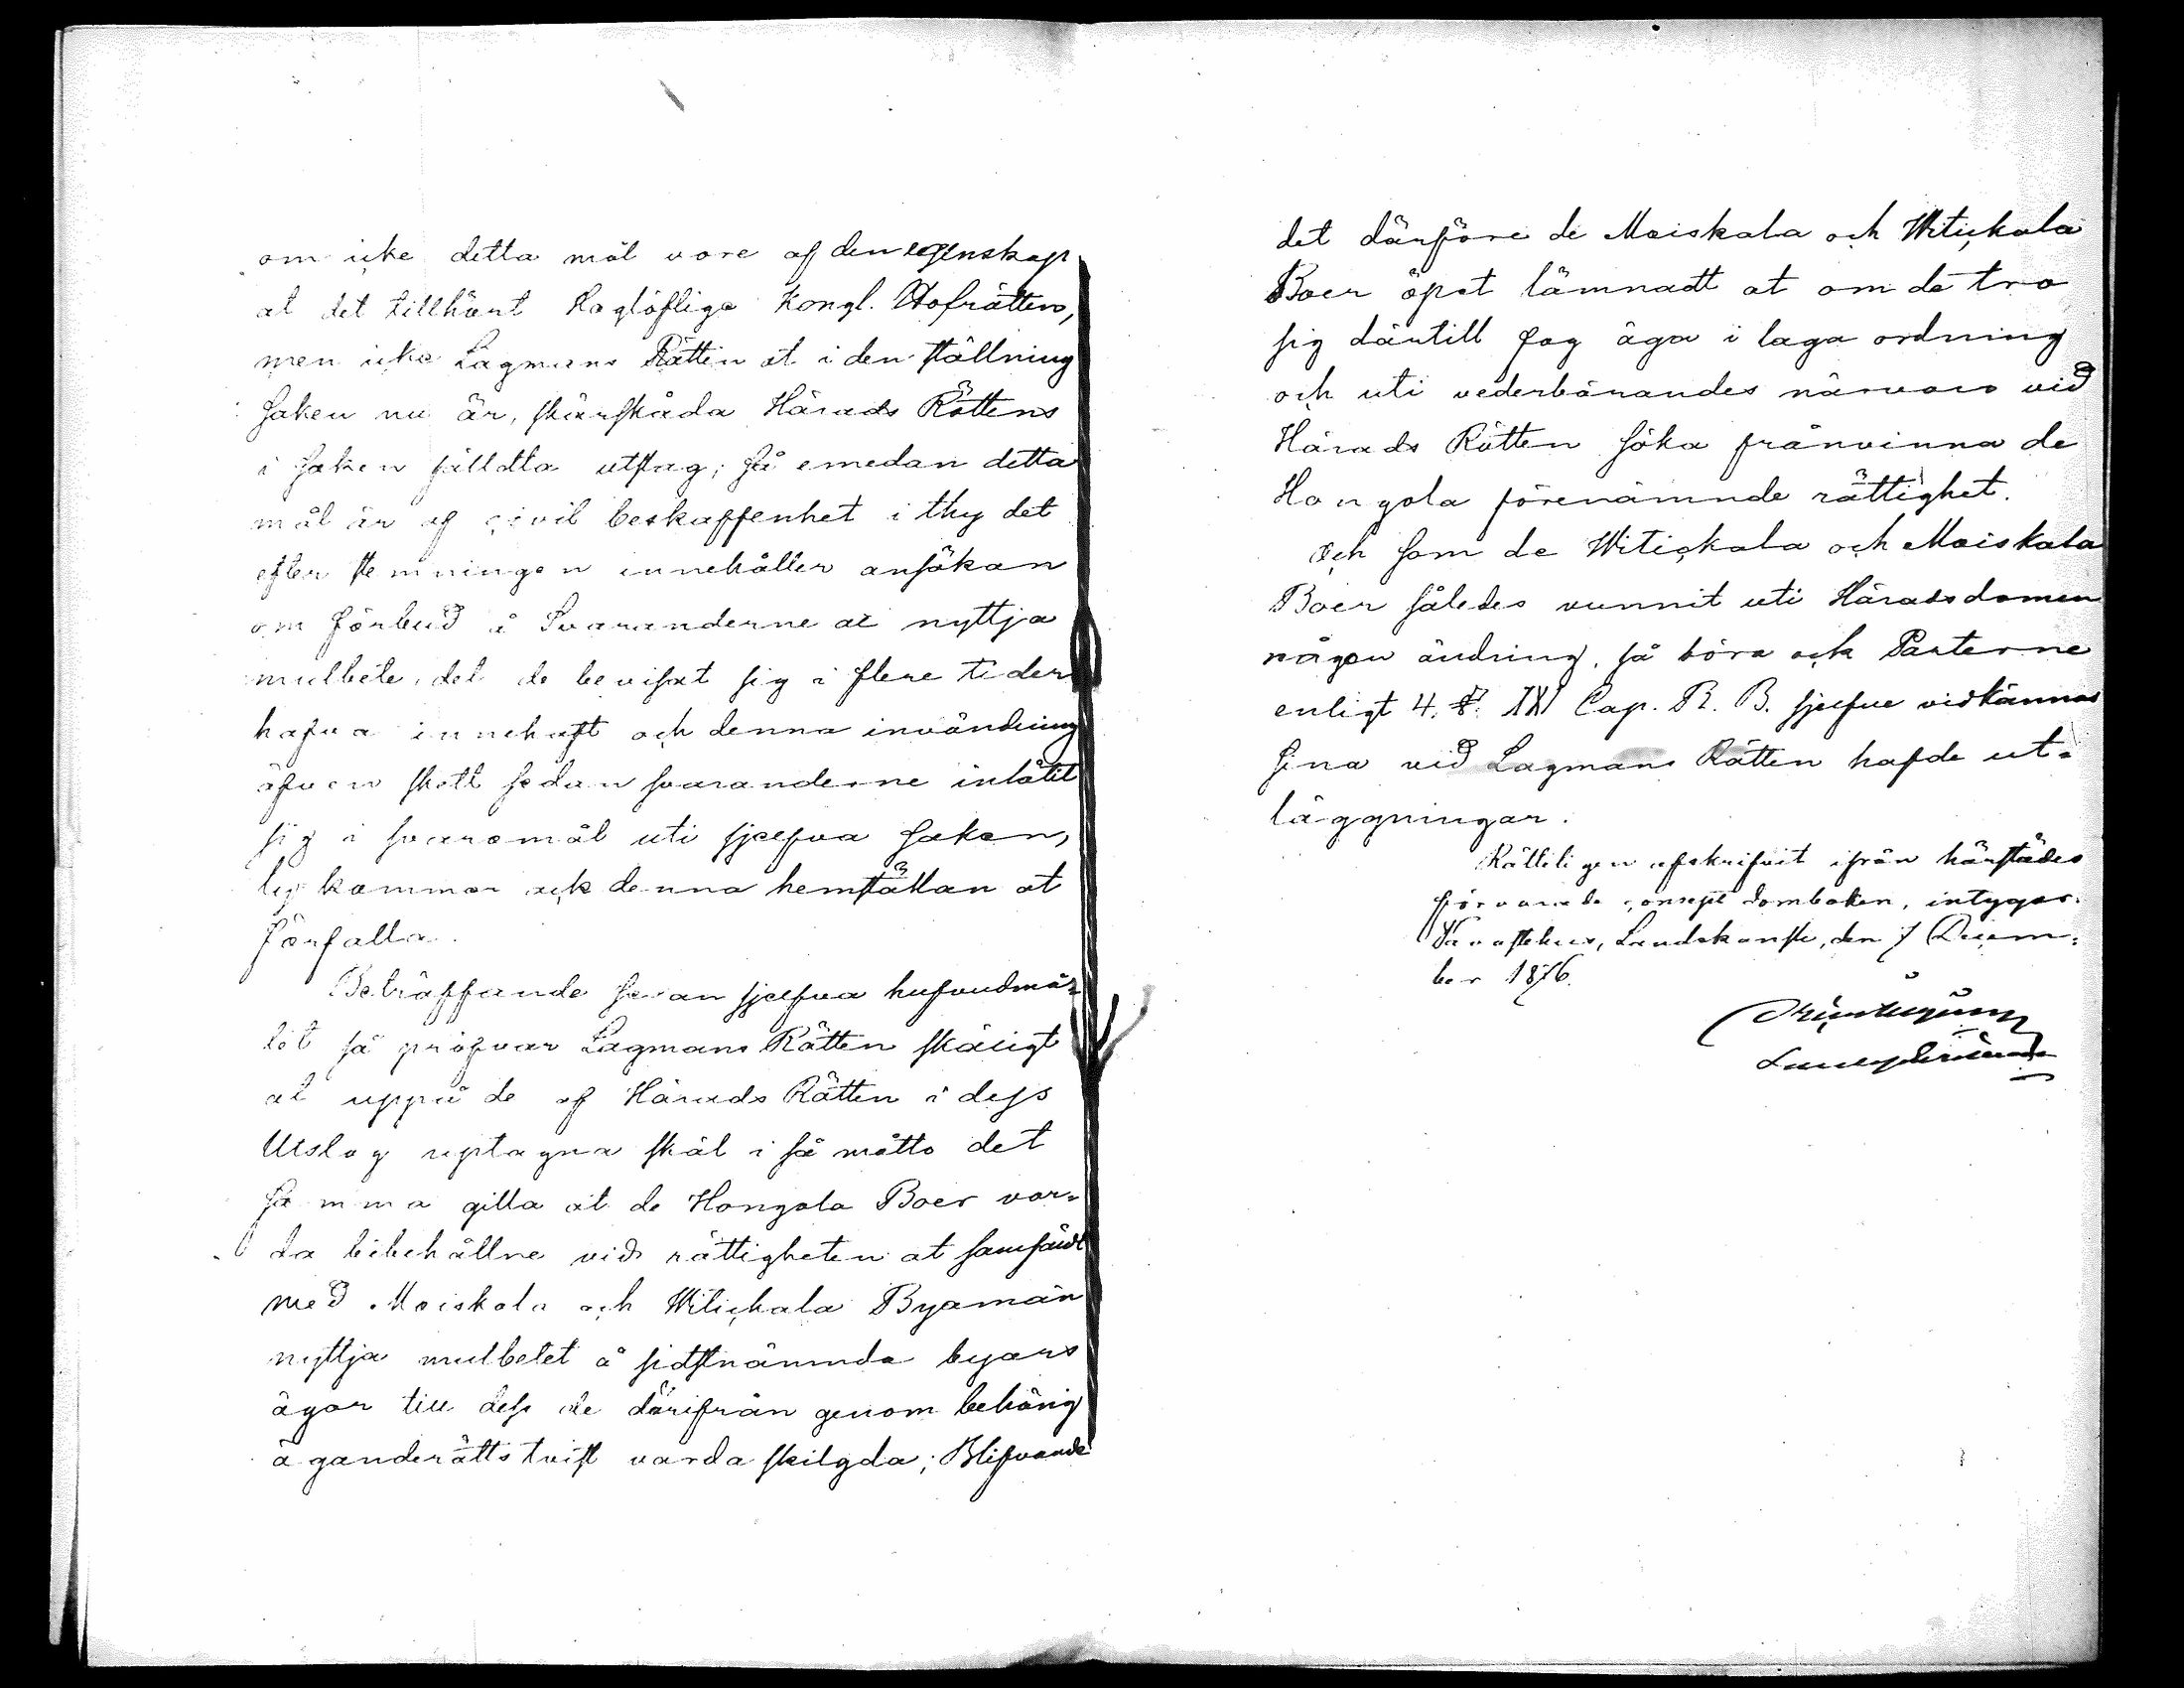 om icke detta mål vore af den egenskap
at det tillhört Höglöflige Kongl. Hofrätten,
men icke Lagmans Rätten at i den ställning
saken nu är, skärskåda Härads Rättens
i saken fälldta utslag; så emedan detta
mål är af civil beskaffenhet i thy det
efter stemningen innehåller ansökan
om förbud å Svaranderne at nyttja
mulbete, det de bevisat sig i flere tider
hafva innehaft och denna invändning
äfven skett sedan svaranderne inlåtit
sig i svaromål uti sjelfva saken,
ty kommer ock denna hemställan at
förfalla.
Beträffande sedan sjelfva hufvudmå-
let så pröfvar Lagmans Rätten skäligt
at uppå de af Härads Rätten i dess
Utslag uptagna skäl i så måtto det
samma gilla at de Hongola Boer var-
da bibehållne vid rättigheten at samfäldt
med Moiskala och Witickala Byamän
nyttja mulbetet å sidstnämnda byars
ägor till dess de därifrån genom behörig
äganderättstvist varda skilgda; Blifvande
det därföre de Moiskala och Witickala
Boer öpet lämnadt at om de tro
sig därtill fog äga i laga ordning
och uti vederbörandes närvaro vid
Härads Rätten söka frånvinna de
Hongola förenämnde rättighet.
Och som de Witickala och Moiskala
Boer således vunnit uti Häradsdomen
någon ändring, så böra ock Parterne
enligt 4. §. XXI Cap. R. B. sjelfve vidkännas
sina vid Lagmans Rätten hafde ut-
läggningar.
Rätteligen afskrifvit ifrån härstädes
förvarade concept domboken, intygar.
Tavastehus, Landskansli, den 7 Decem-
ber 1876.